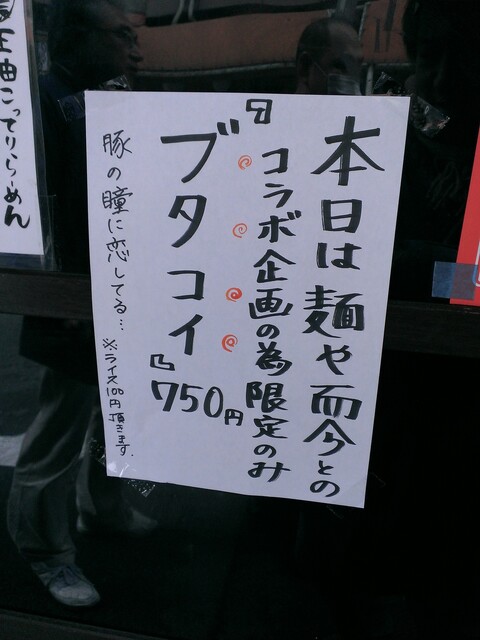 本日は麺や而今との
コラボ企画の為限定のみ
『ブタコイ』750円
豚の瞳に恋してる…
※ライス100円頂きます.
王油こってりらーめん